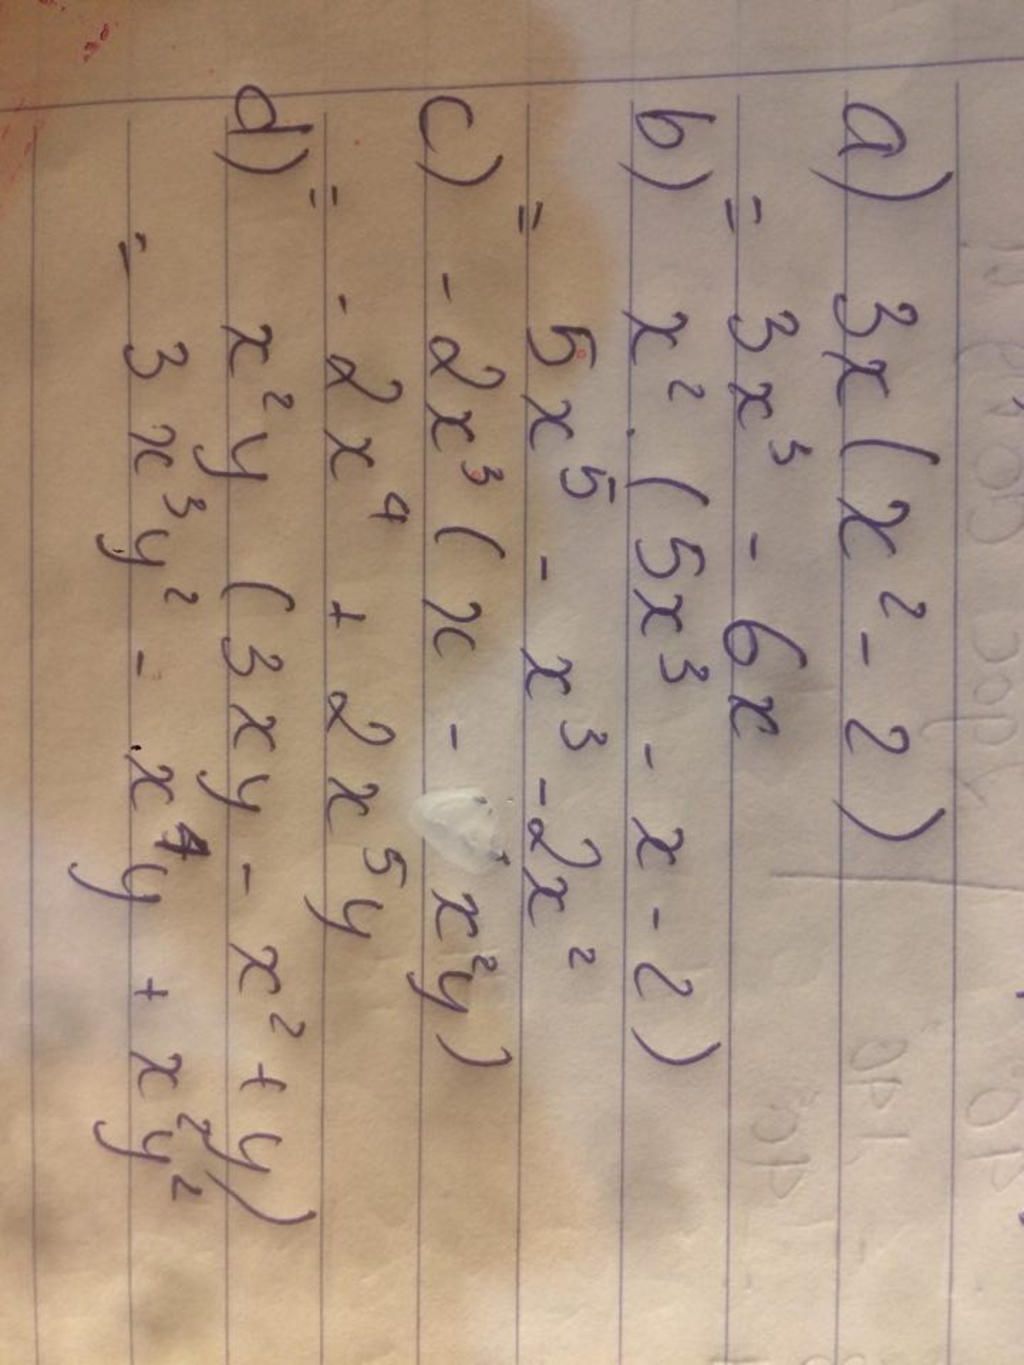 a) 3x(x² - 2)
= 3x³ - 6x
b) x².(5x³ - x - 2)
= 5x⁵ - x³ - 2x²
c) - 2x³(x - x²y)
= - 2x⁴ + 2x⁵y
d) x²y (3xy - x² + y)
= 3x³y² - x⁴y + x²y²